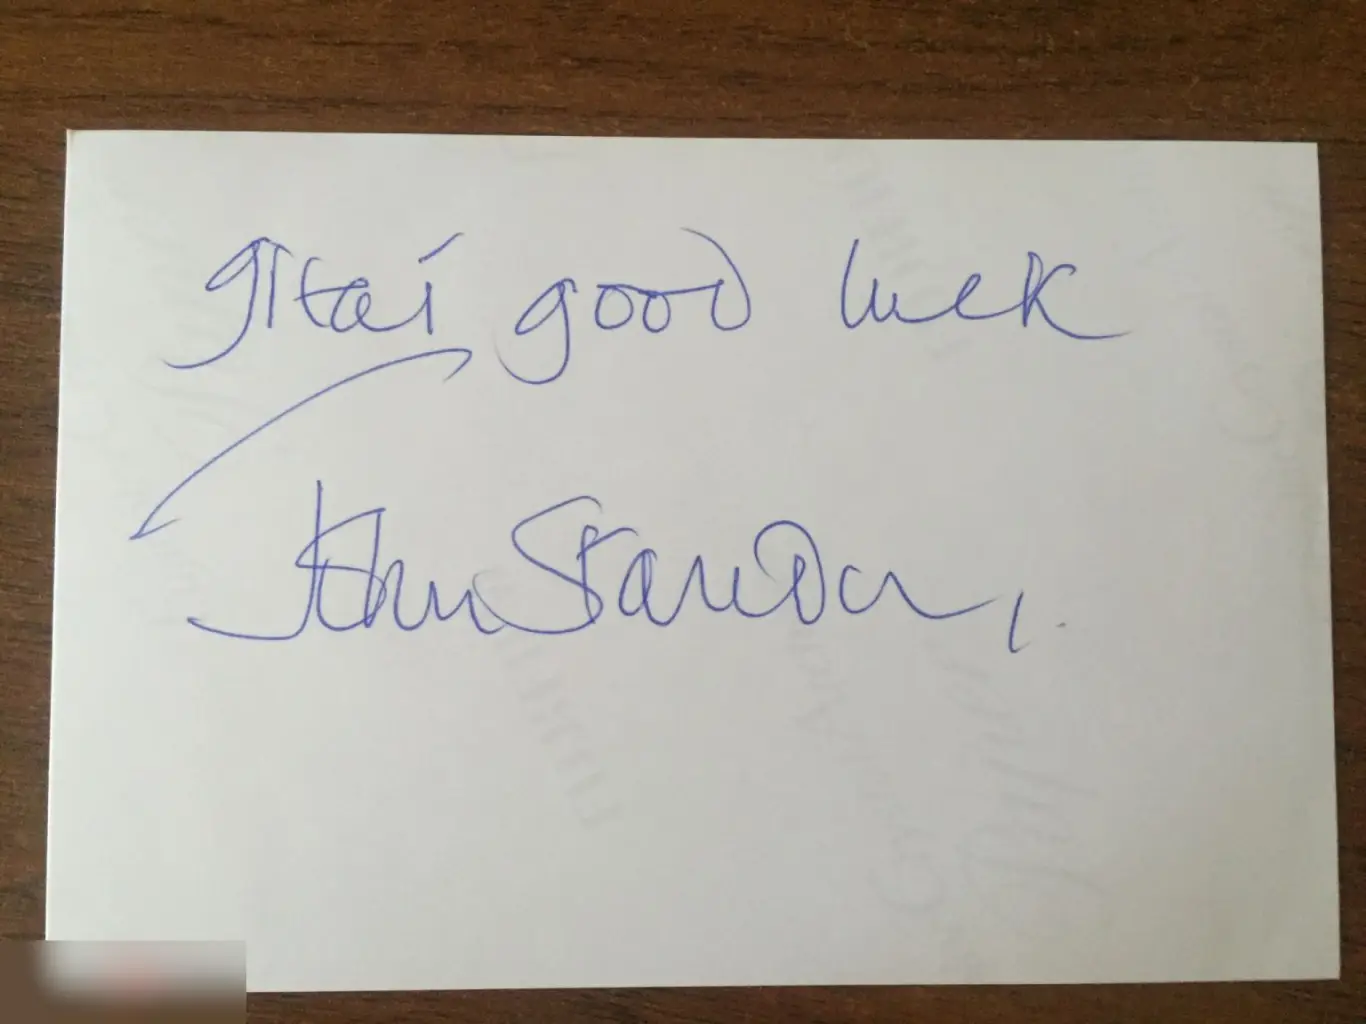 Itai good luck
John Standing